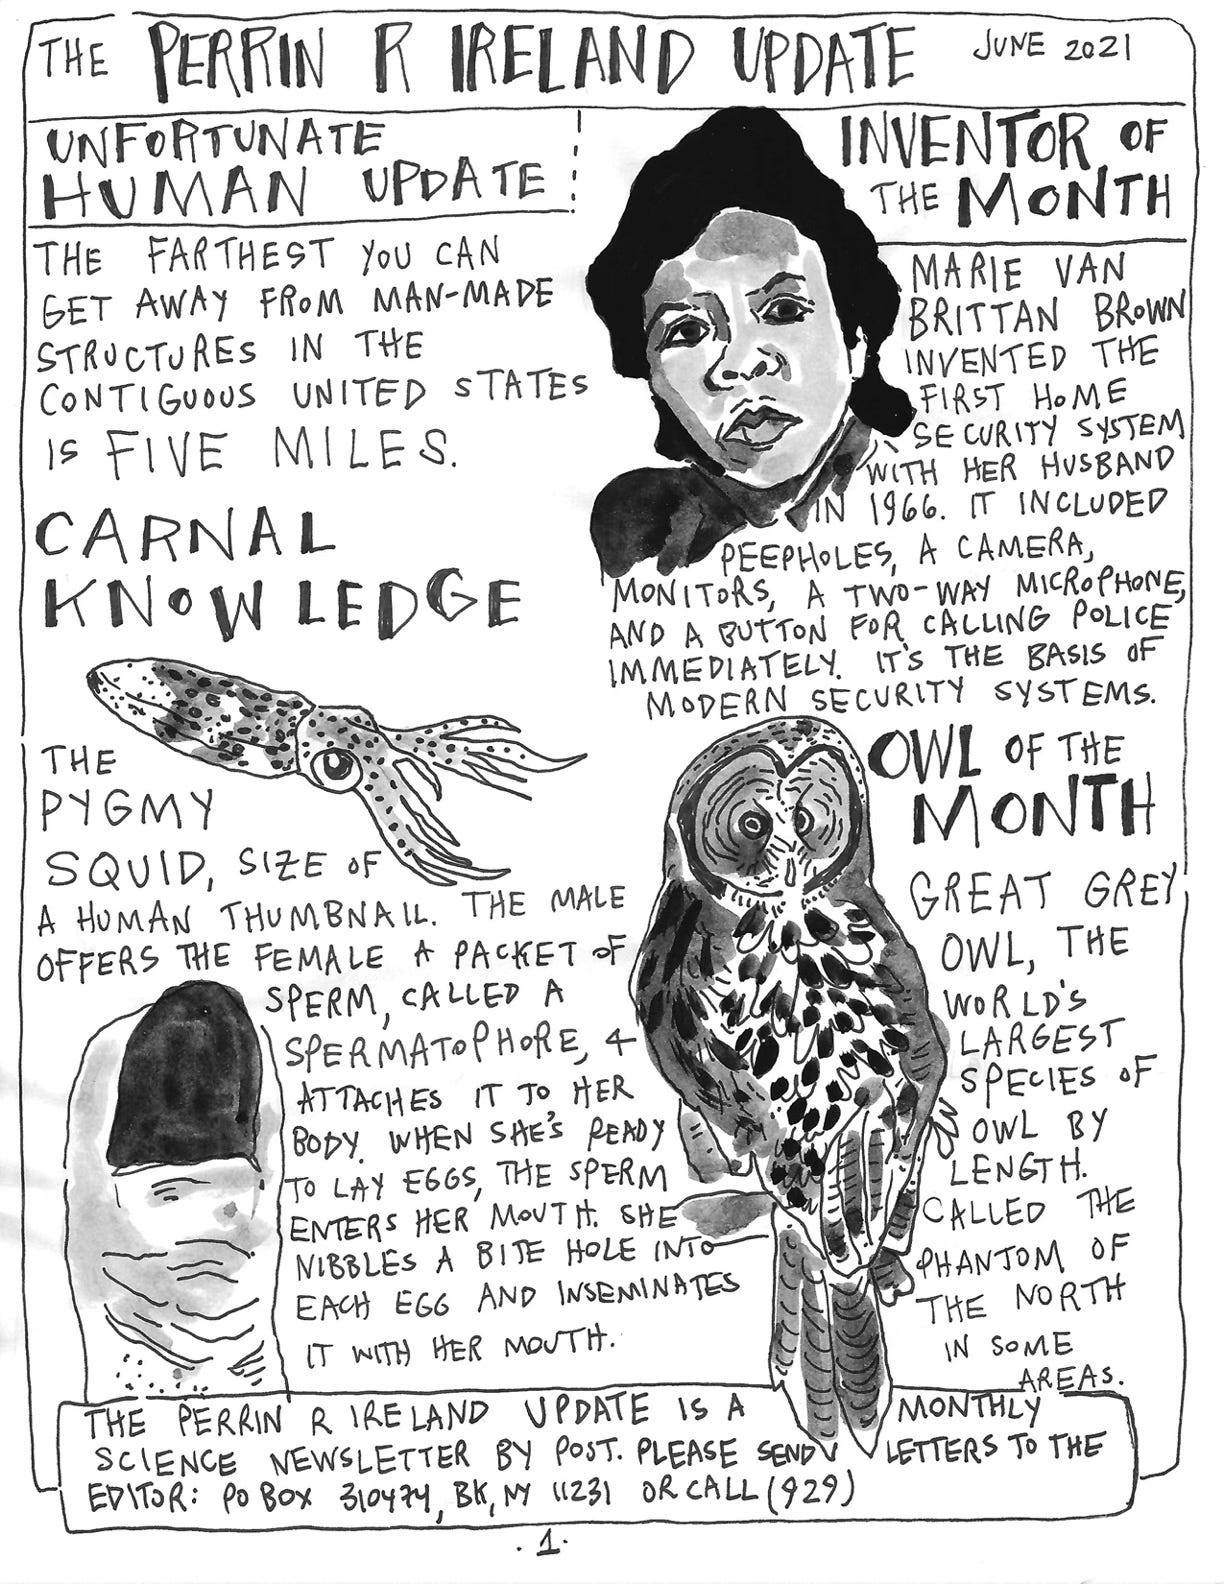 THE PERRIN R IRELAND UPDATE JUNE 2021
UNFORTUNATE
HUMAN UPDATE
THE FARTHEST YOU CAN
GET AWAY FROM MAN-MADE
STRUCTURES IN THE
CONTIGUOUS UNITED STATES
IS FIVE MILES.
CARNAL
KNOWLEDGE
THE
PYGMY
SQUID, SIZE OF
A HUMAN THUMBNAIL. THE MALE
OFFERS THE FEMALE A PACKET OF
SPERM, CALLED A
SPERMATOPHORE, &
ATTACHES IT TO HER
BODY. WHEN SHE'S READY
TO LAY EGGS, THE SPERM
ENTERS HER MOUTH. SHE
NIBBLES A BITE HOLE INTO
EACH EGG AND INSEMINATES
IT WITH HER MOUTH.
INVENTOR OF
THE MONTH
MARIE VAN
BRITTAN BROWN
INVENTED THE
FIRST HOME
SECURITY SYSTEM
WITH HER HUSBAND
IN 1966. IT INCLUDED
PEEPHOLES, A CAMERA,
MONITORS, A TWO-WAY MICROPHONE,
AND A BUTTON FOR CALLING POLICE
IMMEDIATELY. IT'S THE BASIS OF
MODERN SECURITY SYSTEMS.
OWL OF THE
MONTH
GREAT GREY
OWL, THE
WORLD'S
LARGEST
SPECIES OF
OWL BY
LENGTH.
CALLED THE
PHANTOM OF
THE NORTH
IN SOME
AREAS.
THE PERRIN R IRELAND UPDATE IS A MONTHLY
SCIENCE NEWSLETTER BY POST. PLEASE SEND LETTERS TO THE
EDITOR: PO BOX 310474, BK, NY 11231 OR CALL (929)
. 1 .